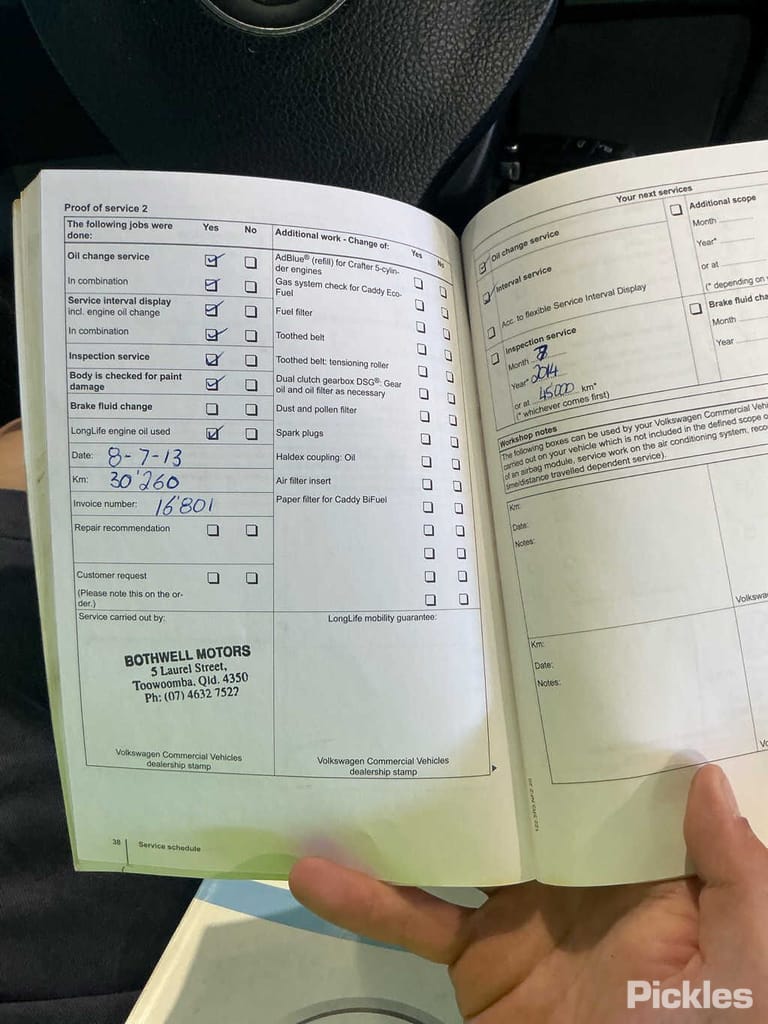 Proof of service 2
The following jobs were done:
Yes
No
Oil change service
In combination
Service interval display
incl. engine oil change
In combination
Inspection service
Body is checked for paint
damage
Brake fluid change
LongLife engine oil used
Date: 8-7-13
Km: 30'260
Invoice number: 16'801
Repair recommendation
Customer request
(Please note this on the or-
der.)
Service carried out by:
BOTHWELL MOTORS
5 Laurel Street,
Toowoomba. Qld. 4350
Ph: (07) 4632 7527
Volkswagen Commercial Vehicles
dealership stamp
Additional work - Change of:
Yes
No
AdBlue® (refill) for Crafter 5-cylin-
der engines
Gas system check for Caddy Eco-
Fuel
Fuel filter
Toothed belt
Toothed belt: tensioning roller
Dual clutch gearbox DSG®: Gear
oil and oil filter as necessary
Dust and pollen filter
Spark plugs
Haldex coupling: Oil
Air filter insert
Paper filter for Caddy BiFuel
LongLife mobility guarantee:
Volkswagen Commercial Vehicles
dealership stamp
38
Service schedule
Your next services
Oil change service
Interval service
Acc. to flexible Service Interval Display
Inspection service
Month 7
Year* 2014
or at 45000 km*
(* whichever comes first)
Additional scope
Month
Year*
or at
(* depending on
Brake fluid cha
Month
Year
Workshop notes
The following boxes can be used by your Volkswagen Commercial Vehi
carried out on your vehicle which is not included in the defined scope o
of an airbag module, service work on the air conditioning system, reco
time/distance travelled dependent service).
Km:
Date:
Notes:
Volkswa
Km:
Date:
Notes:
Vo
Pickles